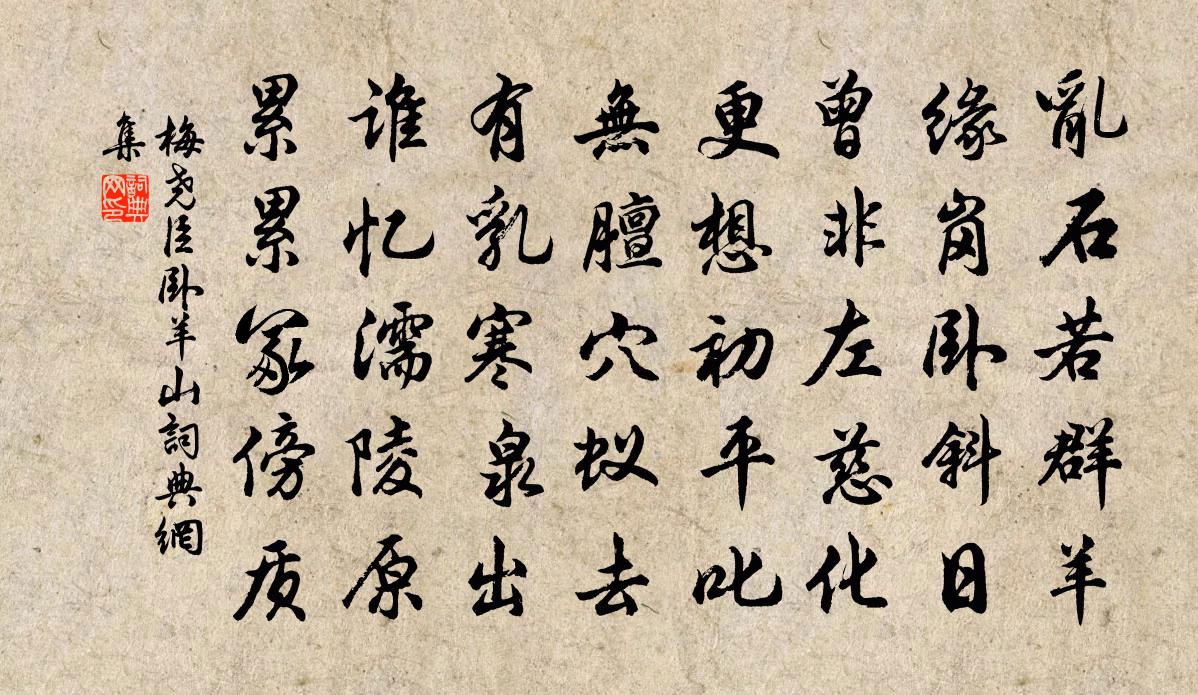 亂石若群羊
缘岗卧斜日
曾非左慈化
更想初平叱
無膻穴蚁去
有乳寒泉出
谁忆濡陵原
累累冢傍质
梅尧臣卧羊山詞典網
集
詞典网印